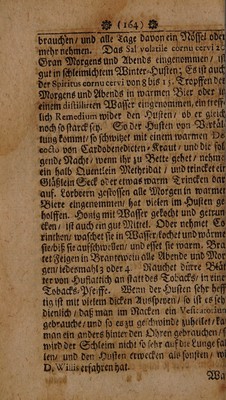 (164)
brauchen/ und alle Tage davon ein Nössel oder
mehr nehmen. Das Sal volatile cornu cervi
Gran Morgens und Abends eingenommen/ ist
gut in schleimichtem Winter-Husten; Es ist auch
der Spiritus cornu cervi von 8 biß 15. Tropffen des
Morgens und Abends in warmen Bier oder
einem distillirten Wasser eingenommen, ein treff-
lich Remedium wider den Husten/ ob er gleich
noch so starck sey. So der Husten von
tung kommt/ so schwitzet mit einem warmen De-
cocto von Cardobenedicten-Kraut/ und die fol-
gende Nacht/ wenn ihr zu Bette gehet/ nehmet
ein halb Quentlein Methridat/ und trincket ein
Gläßlein Seck oder etwas warm Trincken dar-
auf. Lorbeern gestossen alle Morgen in warmen
Biere eingenommen/ hat vielen im Husten ge-
holffen. Honig mit Wasser gekocht und getrun-
cken/ ist auch ein gut Mittel. Oder nehmet Co-
rinthen/ waschet sie in Wasser/ kochet und wärmet
sie/ biß sie aufschwellen/ und esset sie warm. Bra-
tet Feigen in Brantewein alle Abende und Mor-
gen/ iedesmahl 3 oder 4 Rauchet dürre Blät-
ter von Huflattich an statt des Tobacks/ in einer
Tobacks-Pfeiffe. Wenn der Husten sehr hef-
tig ist mit vielem dicken Ausspeyen/ so ist es sehr
dienlich/ daß man im Nacken ein Vesicatorium
gebrauche/ und so es zu geschwinde zuheilet/ kan
man ein anders hinter den Ohren gebrauchen/ so
wird der Schleim nicht so sehr auf die Lunge fal-
len/ und den Husten erwecken als sonsten/ wie
D. Willis erfahren hat.